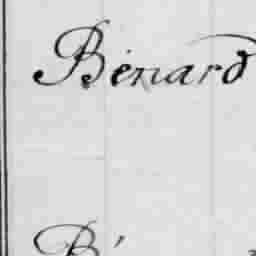 Bénard